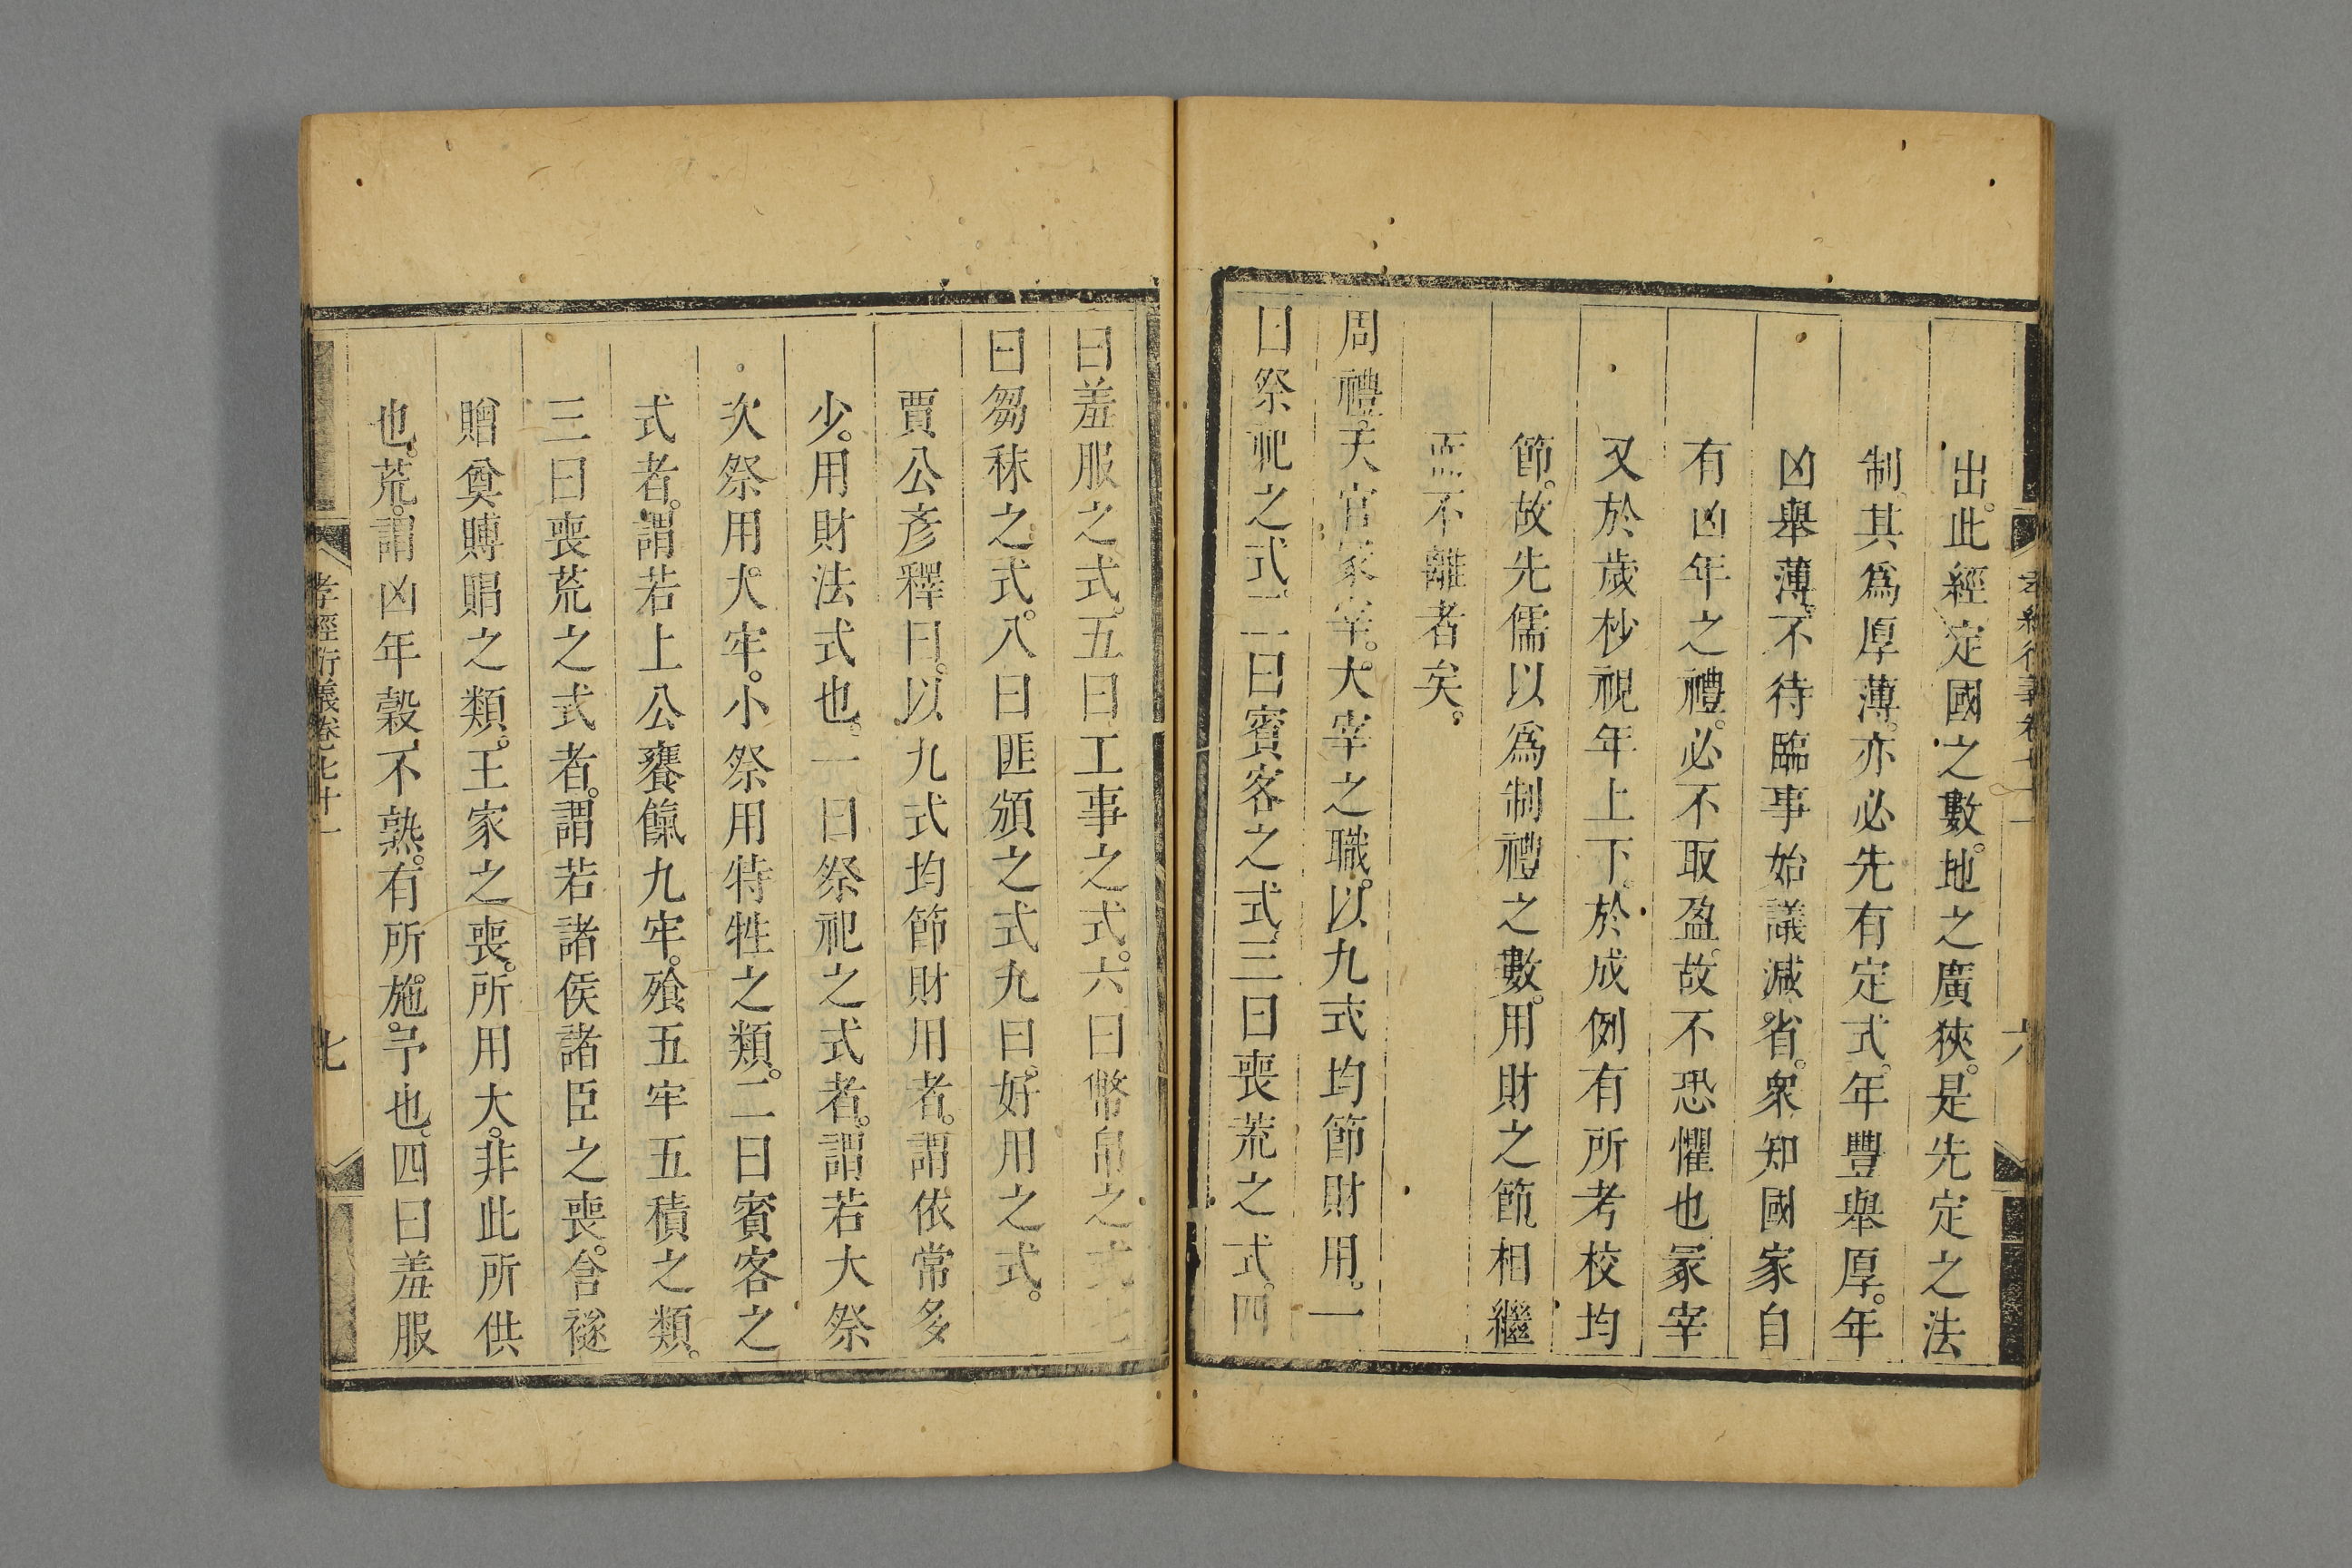 出。此經定國之數。地之廣狹。是先定之法
制。其爲厚薄。亦必先有定式。年豐舉厚。年
凶舉薄。不待臨事始議減省。衆知國家自
有凶年之禮。必不取盈。故不恐懼也冡宰
又於歲杪視年上下。於成例有所考校均
節。故先儒以爲制禮之數。用財之節。相繼
而不離者矣。
周禮。天官冢宰。大宰之職。以九式均節財用。一
曰祭祀之式。二曰賓客之式。三曰喪荒之式。四
曰羞服之式。五曰工事之式。六曰幣帛之式七
曰芻秣之式。八曰匪頒之式九曰。好用之式。
賈公彥釋曰。以九式均節財用者。謂依常多
少。用財法式也。一曰祭祀之式者。謂若大祭
次祭用大牢。小祭用特牲之類。二曰賓客之
式者。謂若上公饔餼九牢。飱五牢五積之類。
三曰喪荒之式者。謂若諸侯諸臣之喪。含襚
贈奠賻賵之類。王家之喪。所用大。非此所供
也。荒。謂凶年穀不熟。有所施。予也。四曰羞服
孝經衍義卷七十一
七